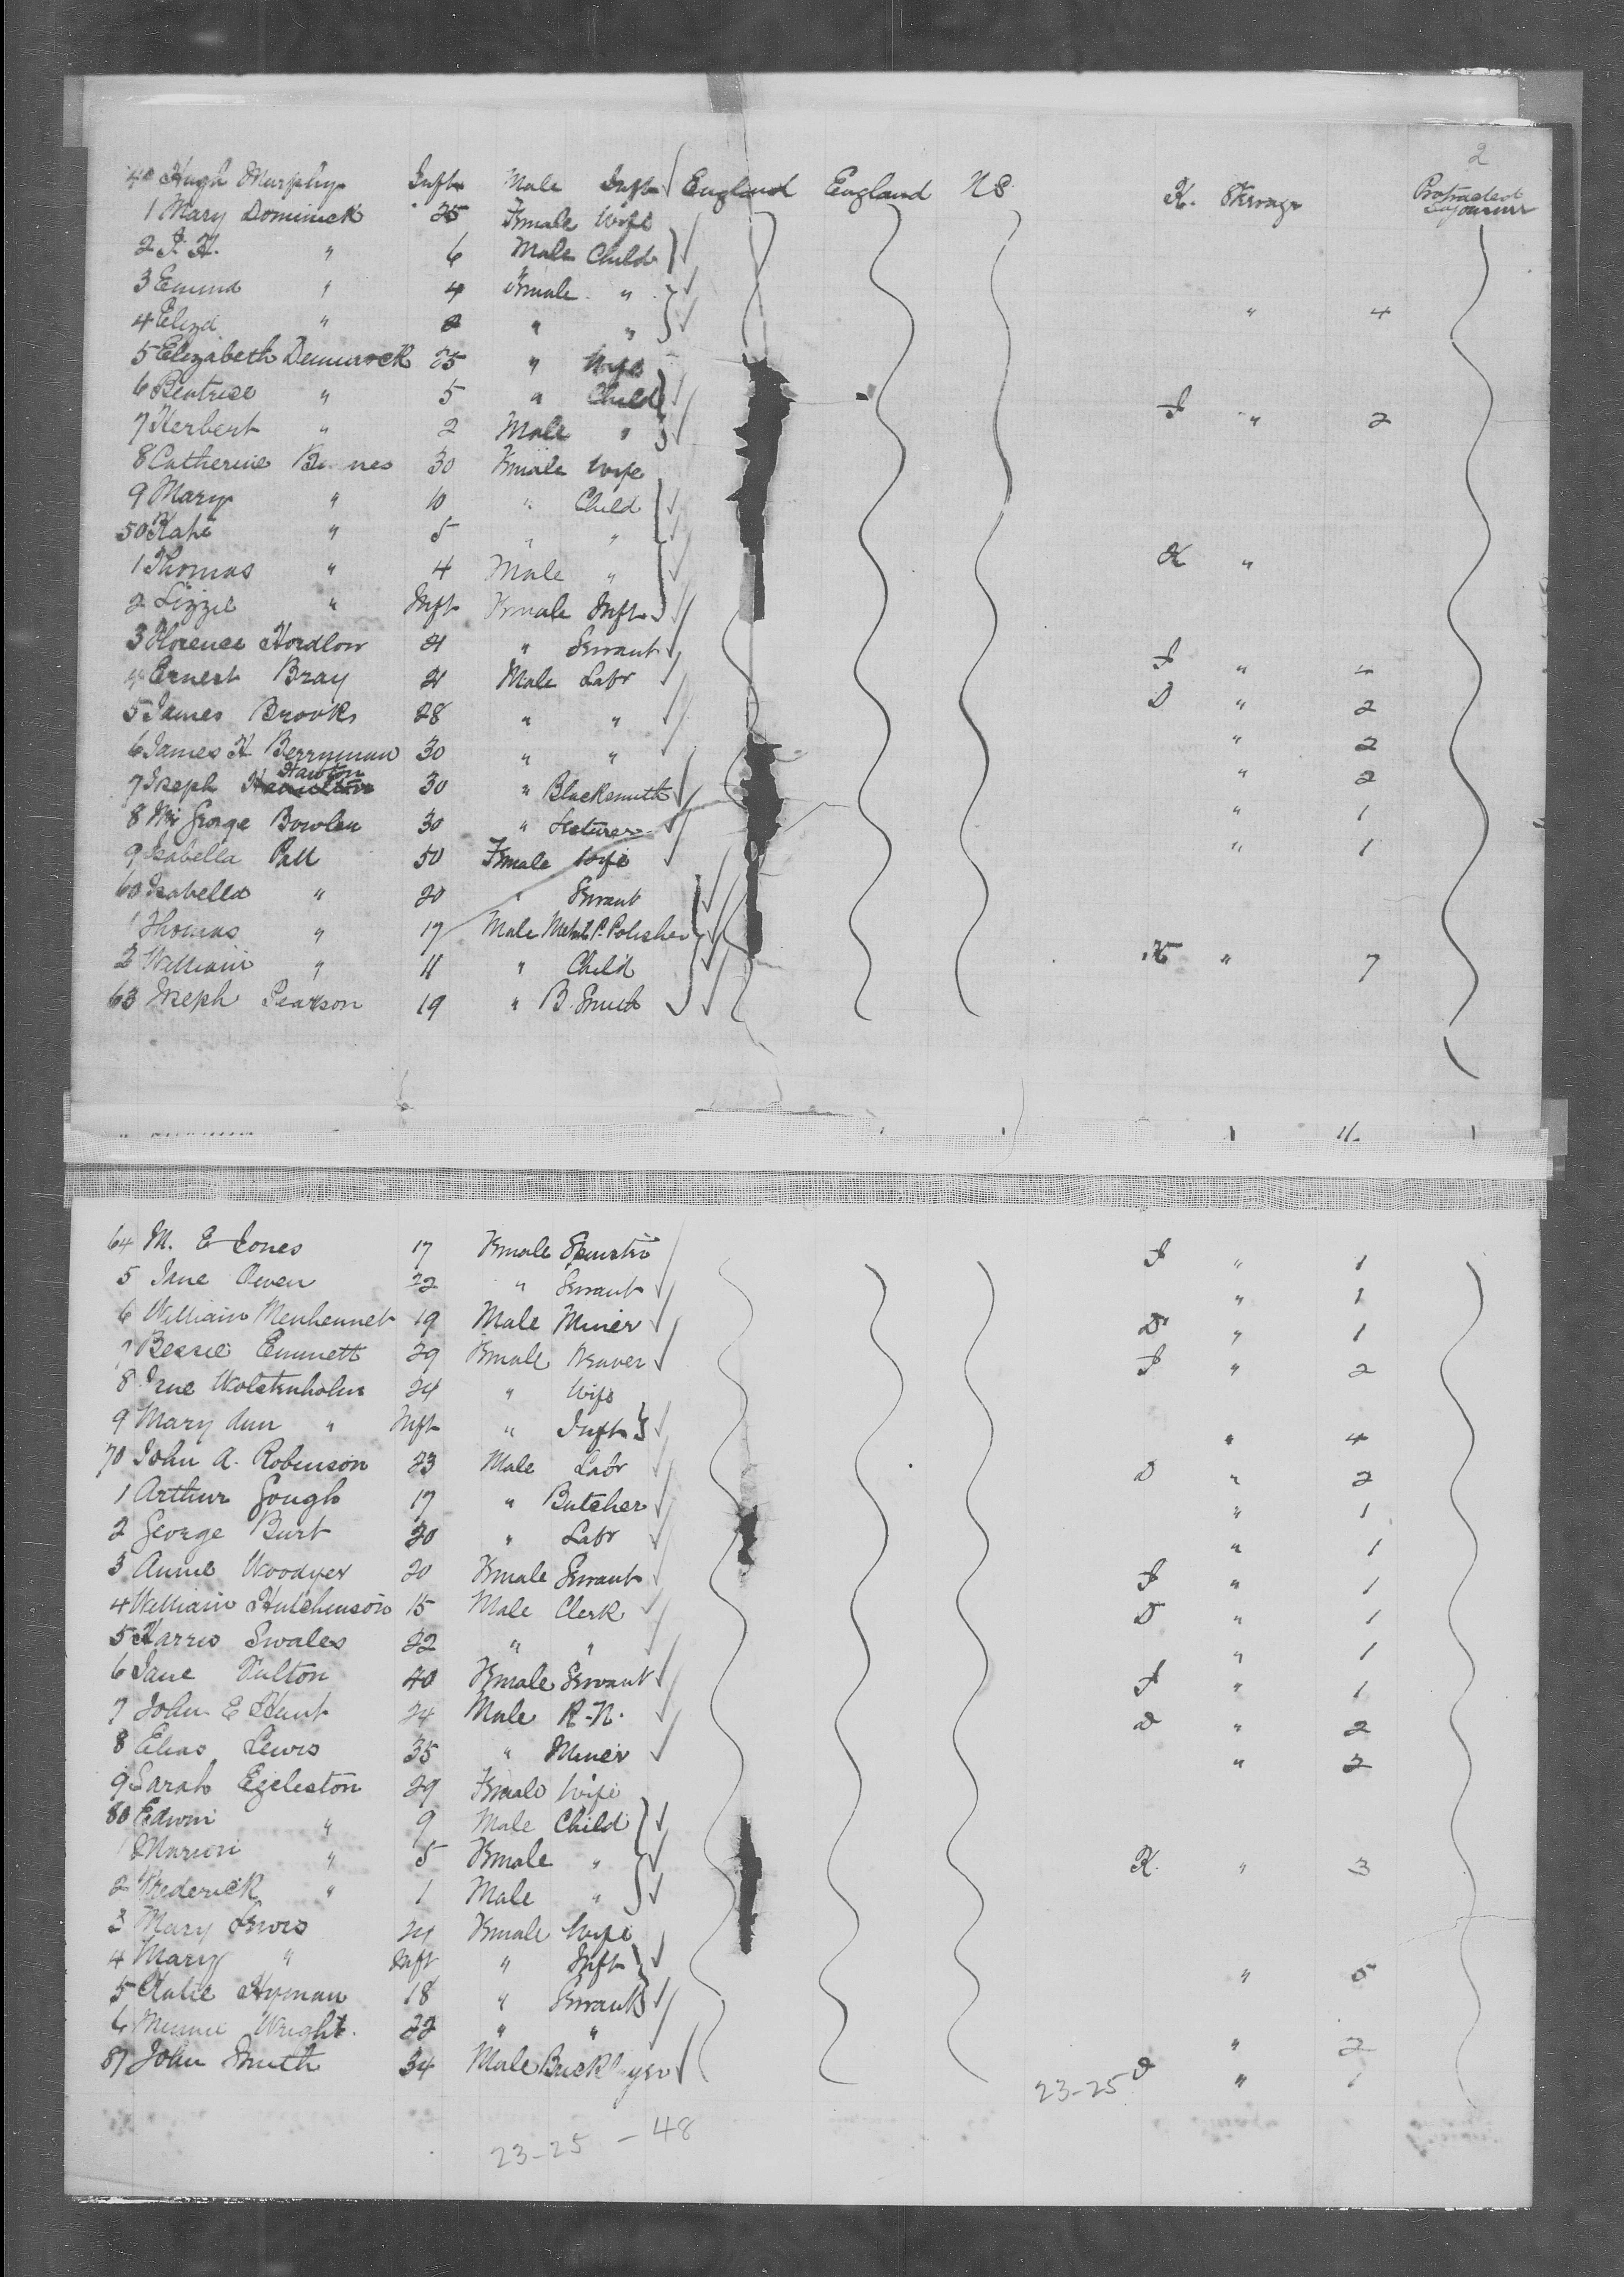 2
40 Hugh Murphy Inft Male Inft England England US K. Steerage Protracted Sojourner
1 Mary Dominick 25 Female Wife
2 J. H. " 6 Male Child
3 Emma " 4 Female "
4 Eliza " 2 " " " 4
5 Elizabeth Dennick 25 " Wife
6 Beatrice " 5 " Child
7 Herbert " 2 Male " J " 2
8 Catherine 30 Female Wife
9 Mary " 10 " Child
50 Kate " 5 " "
1 Thomas " 4 Male " K "
2 Lizzie " Inft Female Inft
3 Florence 21 " Servant J "
4 Ernest Bray 21 Male Labr D " 2
5 James Brooks 28 " " " 2
6 James H Berryman 30 " " " 2
7 Joseph Hawton 30 " Blacksmith " 1
8 George Bowlen 30 " Lecturer " 1
9 Isabella Bell 50 Female Wife
60 Isabella " 20 " Servant
1 Thomas " 17 Male Metal P. Polisher
2 William " 11 " Child K " 7
63 Joseph Pearson 19 " B. Smith
64 M. E Jones 17 Female Spinster J " 1
5 Jane Owen 22 " Servant " 1
6 William Menhennet 19 Male Miner D " 1
7 Bessie Emmett 29 Female Weaver J " 2
8 Wolstenholm 24 " Wife
9 Mary Ann " Inft " Inft " 4
70 John A. Robinson 23 Male Labr D " 2
1 Arthur Gough 17 " Butcher " 1
2 George Burt 20 " Labr " 1
3 Annie Woodyer 20 Female Servant J " 1
4 William Hutchinson 15 Male Clerk D " 1
5 Harris Swales 22 " " " 1
6 Jane Fulton 40 Female Servant J " 1
7 John E Hunt 24 Male R.N. D " 2
8 Elias Lewis 35 " Miner " 2
9 Sarah Egeleston 29 Female Wife
80 Edwin " 9 Male Child
1 Marion " 5 Female " K. " 3
2 Frederick " 1 Male "
3 Mary Lewis 24 Female Wife
4 Mary " Inft " Inft " 5
5 Katie Hyman 18 " Servant
6 Minnie Wright. 22 " " " 2
87 John Smith 34 Male 23-25 D " 1
23-25 - 48